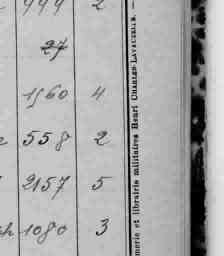 999 2
27
1560 4
558 2
2157 5
ch 1080 3
merie et librairie militaires Henri CHARLES-LAVAUZELLE. —